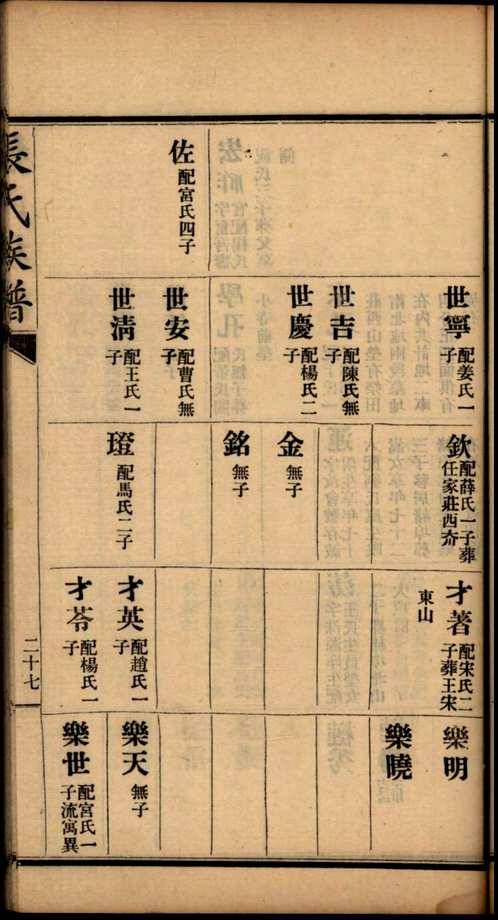 佐 配宮氏四子
世寧 配姜氏一子
世吉 配陳氏無子
世慶 配楊氏二子
世安 配曹氏無子
世清 配王氏一子
欽 配薛氏一子葬任家莊西夼
金 無子
銘 無子
璒 配馬氏二子
才著 配宋氏二子葬王宋東山
才英 配趙氏一子
才苓 配楊氏一子
樂明
樂曉
樂天 無子
樂世 配宮氏一子流寓異
張氏族譜
二十七